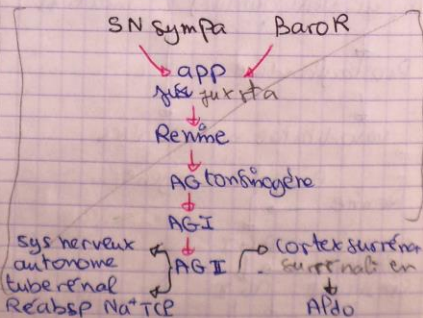 SN Sympa BaroR
app
juxta
Renine
AG tonsinogère
AGI
AG II
sys nerveux
autonome
tube rénal
Réabsp Na⁺ TCP
cortex surréna
surrénali en
Aldo